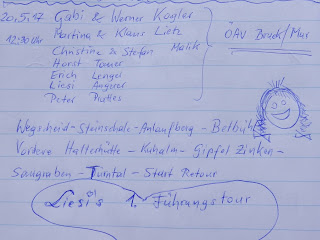 20.5.17 Gabi & Werner Kogler
12:30 Uhr Martina & Klaus Lietz
Christine & Stefan Malik
ÖAV Bruck/Mur
Horst Tomer
Erich Lengel
Liesi Angerer
Peter
Wegscheid - Steinschale - Anlaufberg -
Vordere Hallerhütte - Kuhalm - Gipfel Zinken -
Saugraben - Turntal - Start Retour
Liesi's 1. Führungstour